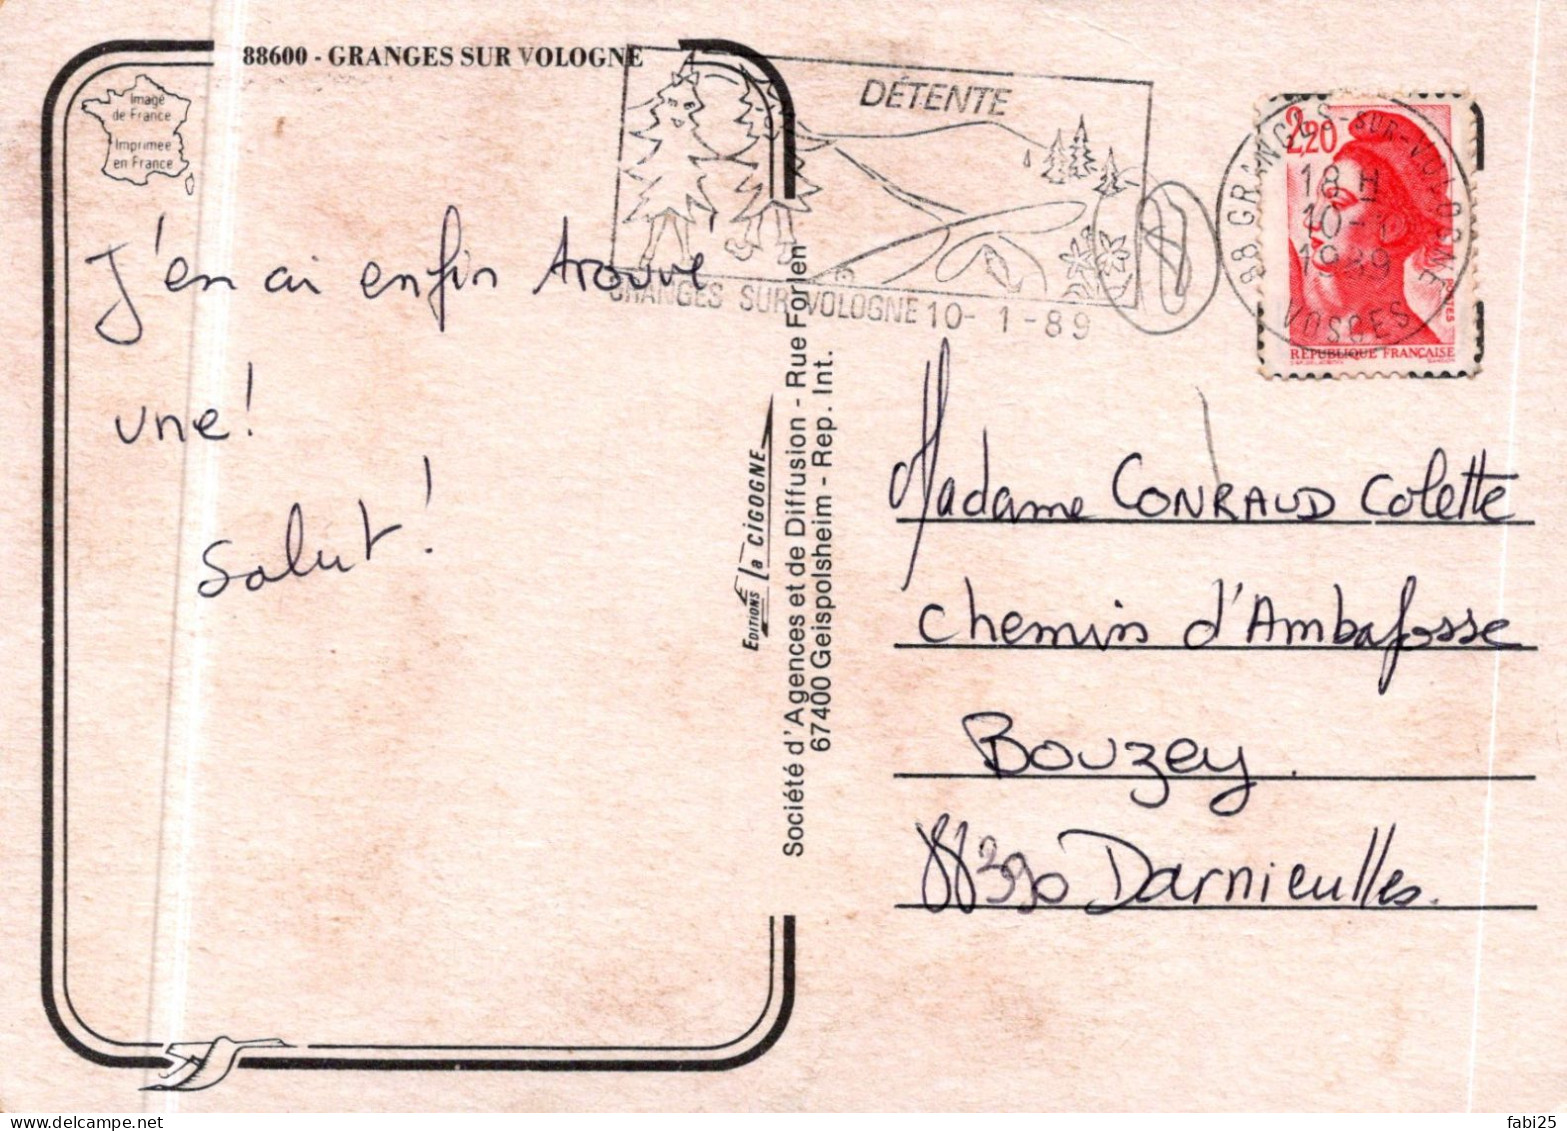 88600 - GRANGES SUR VOLOGNE
Image
de France
Imprimée
en France
J'en ai enfin trouvé
une!
Salut!
DÉTENTE
GRANGES SUR VOLOGNE 10-1-89
2,20
88 GRANGES-SUR-VOLOGNE
18 H
10-1
1989
VOSGES
POSTES
RÉPUBLIQUE FRANÇAISE
EDITIONS la CIGOGNE
Société d'Agences et de Diffusion - Rue Forlen
67400 Geispolsheim - Rep. Int.
Madame CONRAUD Colette
Chemin d'Ambafosse
Bouzey.
88390 Darnieulles.
fabi25